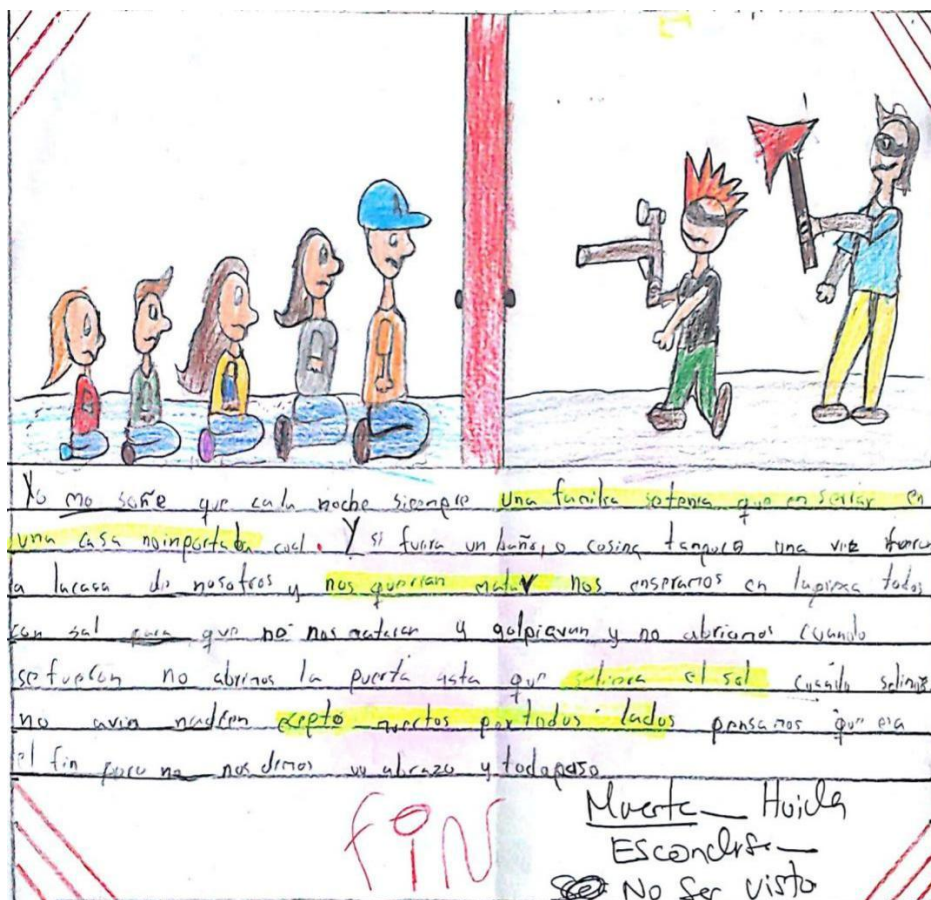 Yo me soñe que cada noche siempre una familia setenia que enserrar en
una casa noinportaba cual. Y si fuera un baño, o cosina tanpoco una vez fueron
a lacasa de nosotros y nos querian matar nos enseramos en lapieza todos
con sal para que no nos mataran y golpiavan y no abriamos cuando
sefueron no abrimos la puerta asta que saliera el sol cuando salimos
no avia nadien exepto muertos portodos lados pensamos que era
el fin pero no nos dimos un abrazo y todopaso
FIN
Muerte — Huida
Esconderse —
No Ser visto